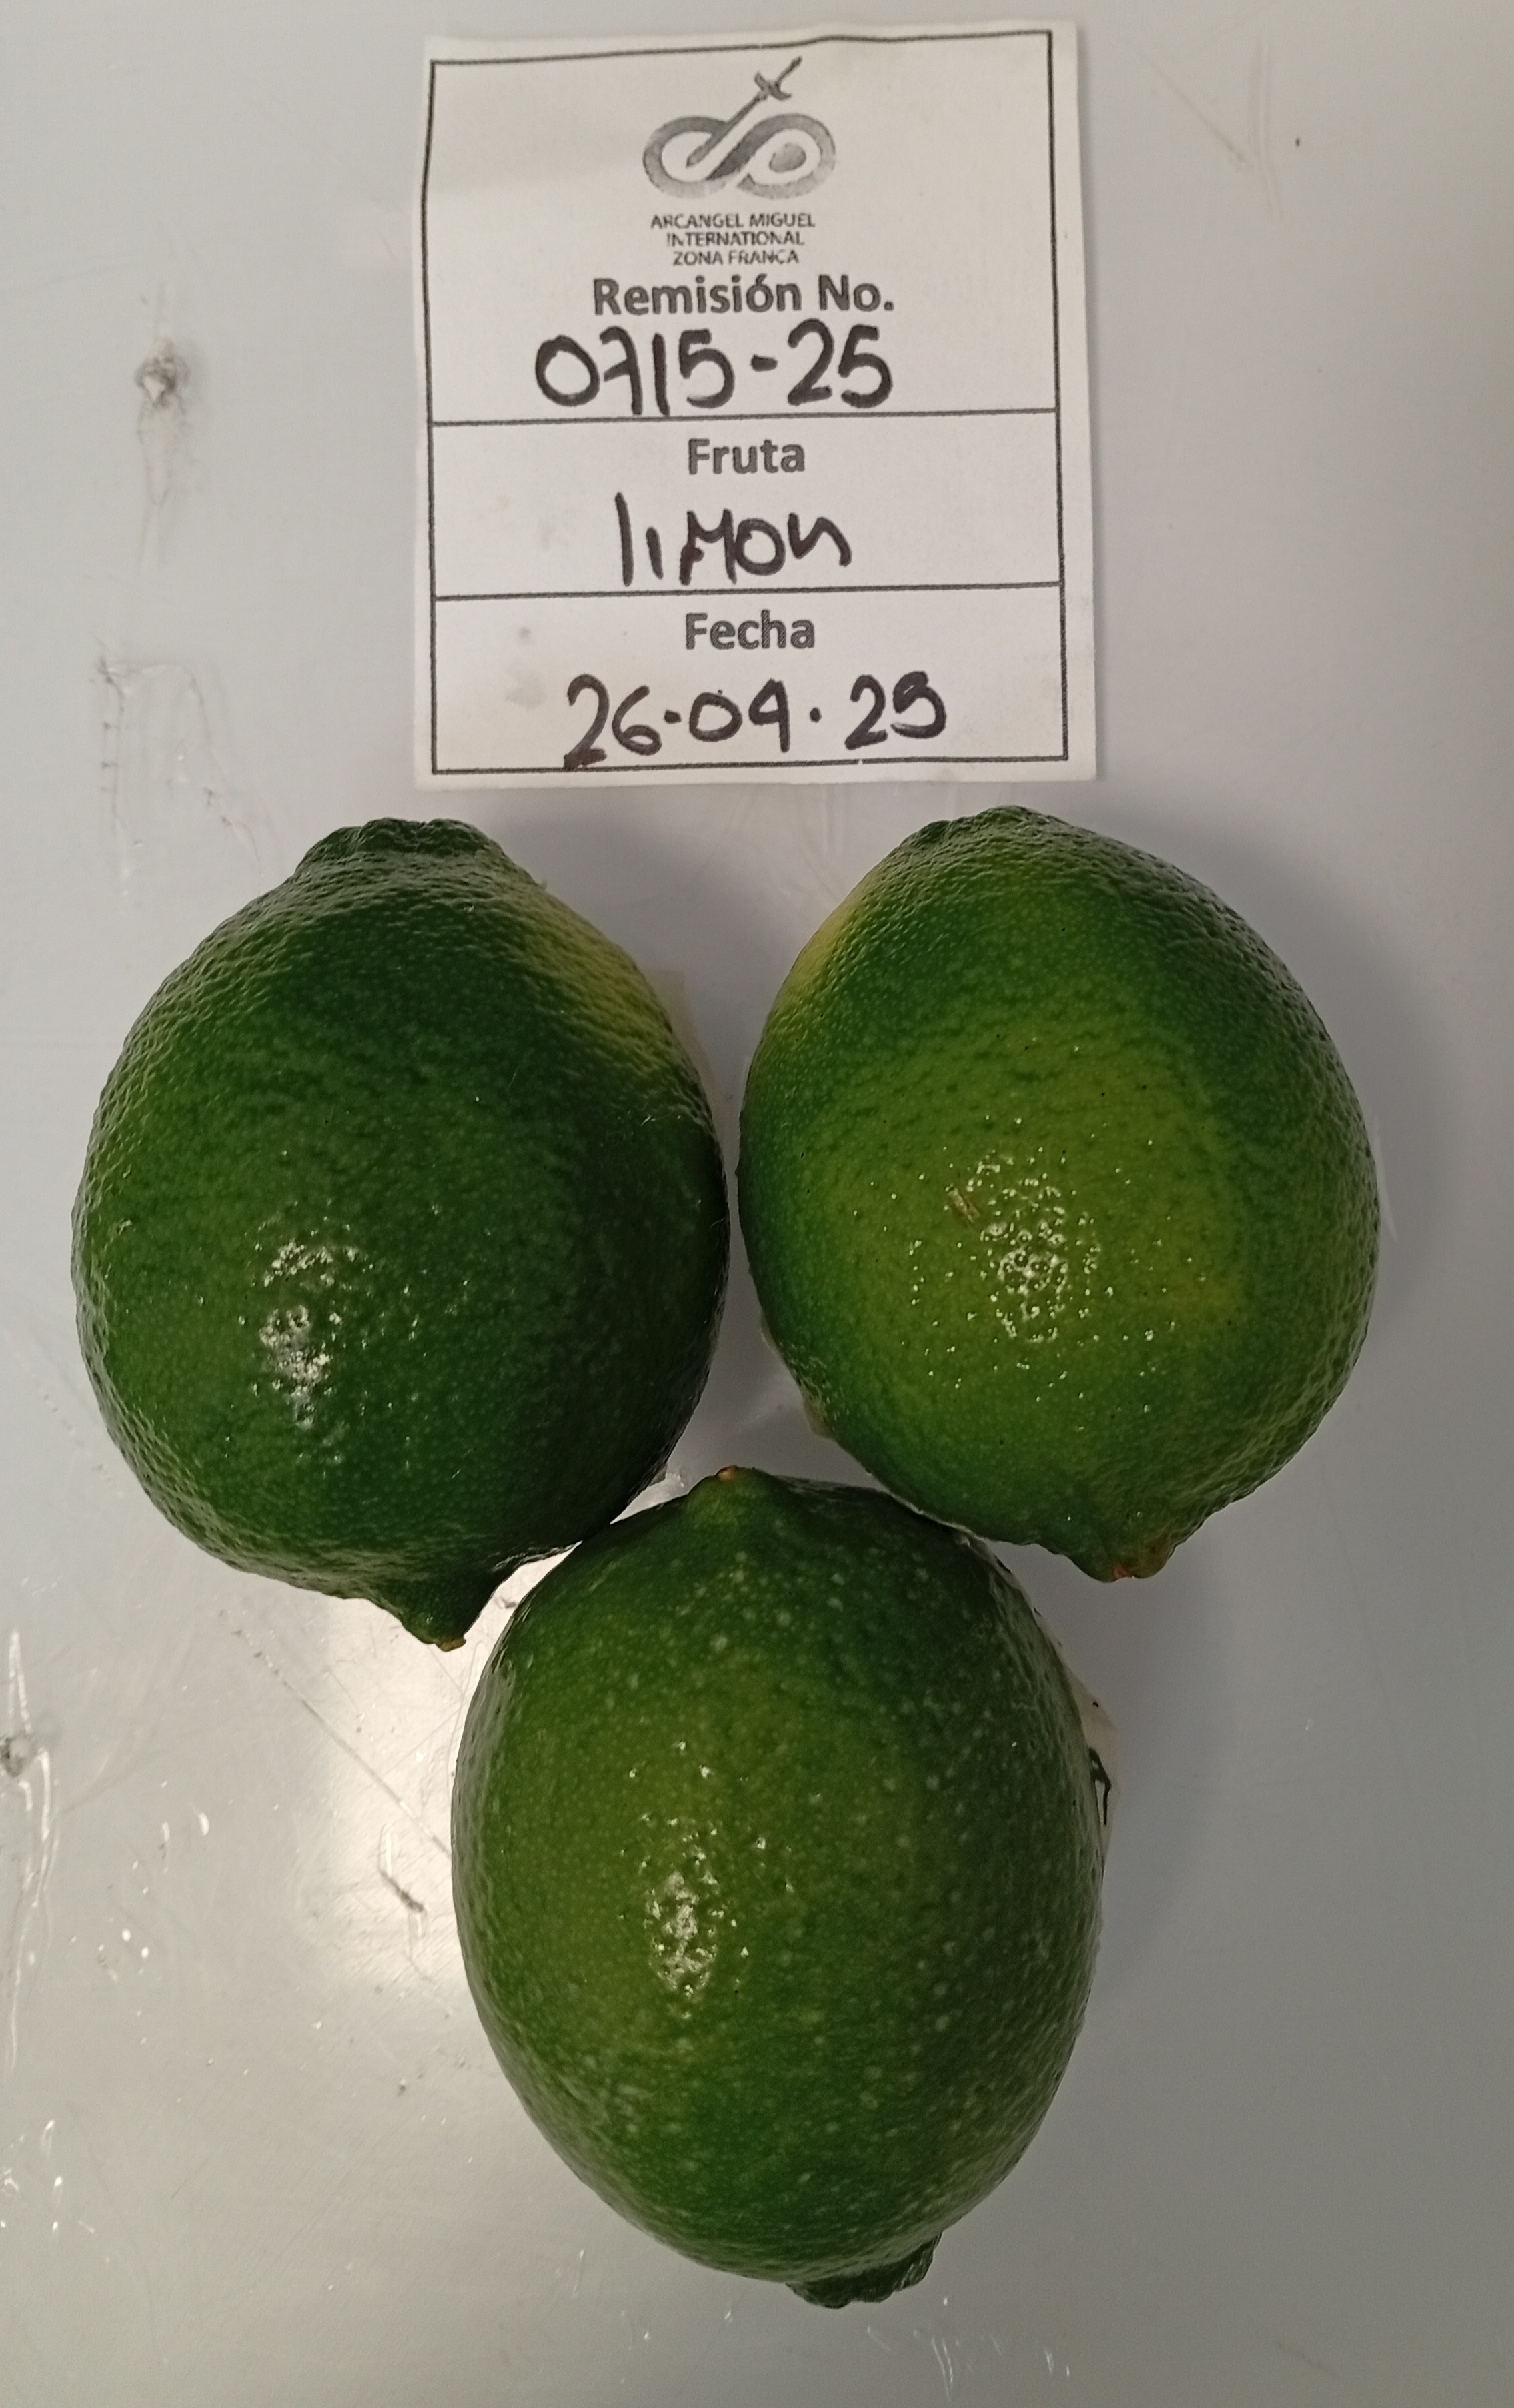 ARCANGEL MIGUEL
INTERNATIONAL
ZONA FRANCA
Remisión No.
0715-25
Fruta
limon
Fecha
26.04.25